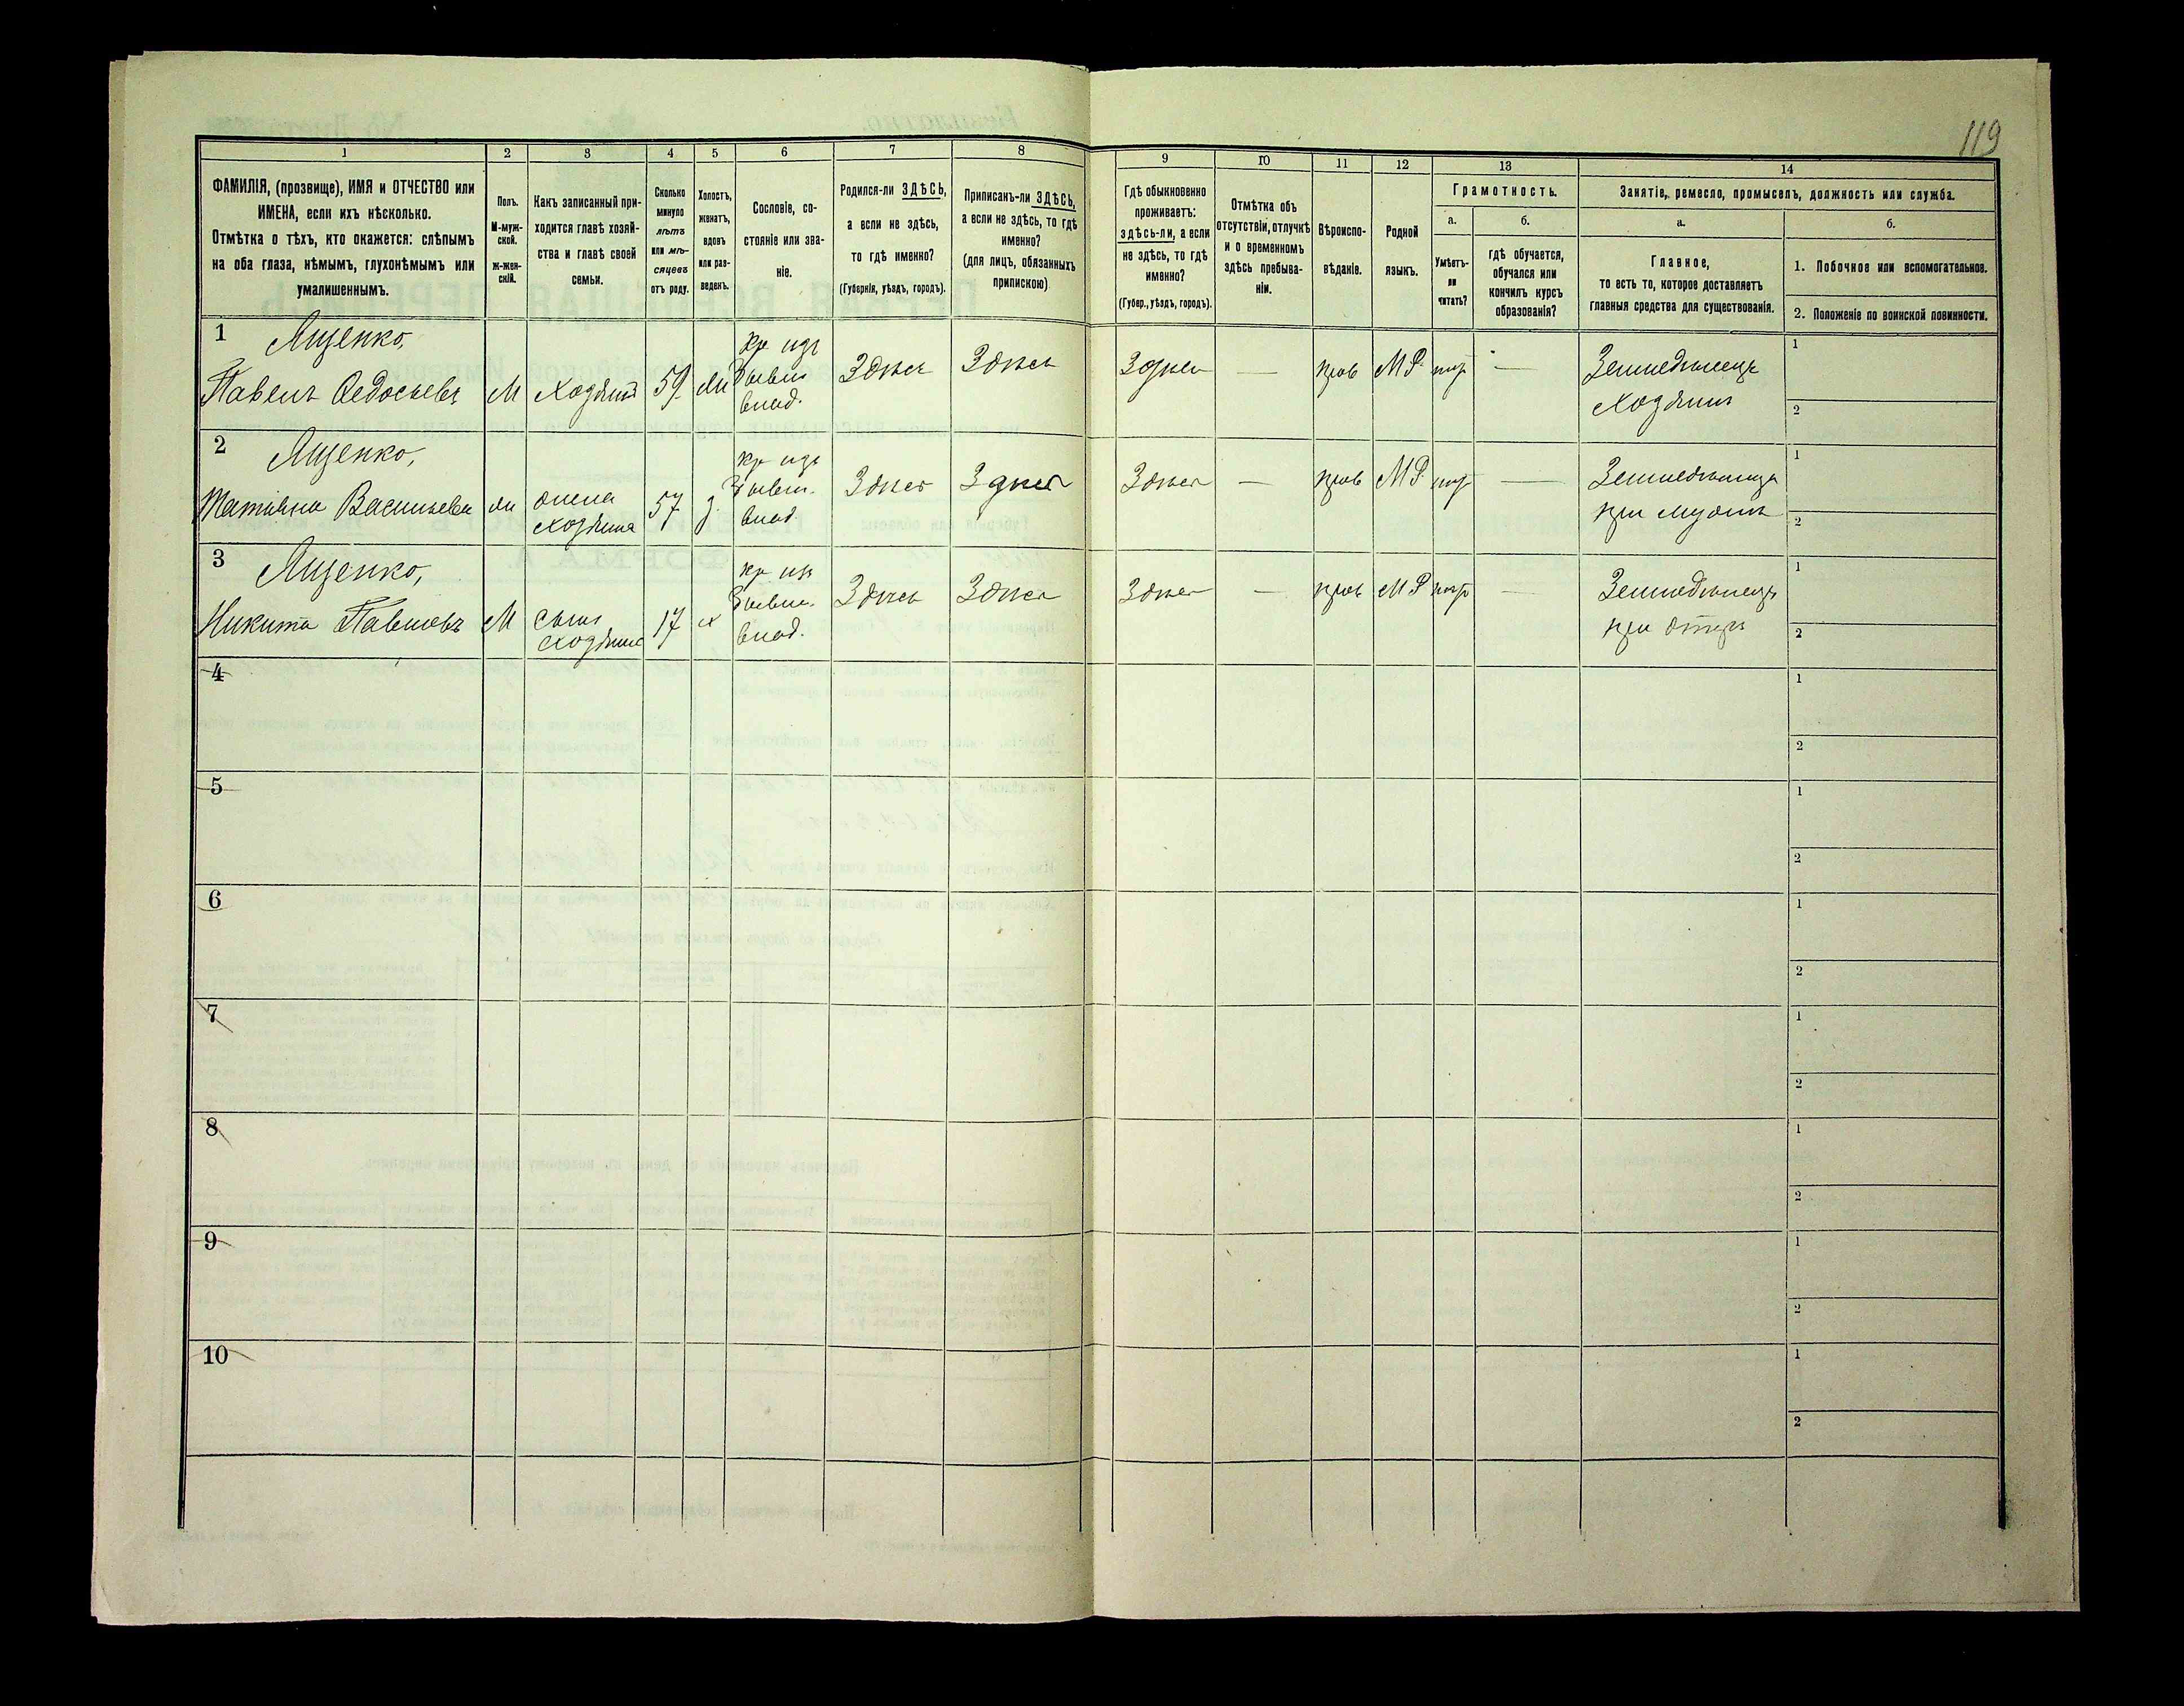 119
1 2 3 4 5 6 7 8 9 10 11 12 13 14
ФАМИЛІЯ, (прозвище), ИМЯ и ОТЧЕСТВО или
ИМЕНА, если ихъ нѣсколько.
Отмѣтка о тѣхъ, кто окажется: слѣпымъ
на оба глаза, нѣмымъ, глухонѣмымъ или
умалишеннымъ.
Полъ.
М-муж-
ской.
Ж-жен-
скій.
Какъ записанный при-
ходится главѣ хозяй-
ства и главѣ своей
семьи.
Сколько
минуло
лѣтъ
или мѣ-
сяцевъ
отъ роду.
Холостъ,
женатъ,
вдовъ
или раз-
веденъ.
Сословіе, со-
стояніе или зва-
ніе.
Родился-ли ЗДѢСЬ,
а если не здѣсь,
то гдѣ именно?
(Губернія, уѣздъ, городъ).
Приписанъ-ли ЗДѢСЬ,
а если не здѣсь, то гдѣ
именно?
(для лицъ, обязанныхъ
припискою)
Гдѣ обыкновенно
проживаетъ:
здѣсь-ли, а если
не здѣсь, то гдѣ
именно?
(Губер., уѣздъ, городъ).
Отмѣтка объ
отсутствіи, отлучкѣ
и о временномъ
здѣсь пребыва-
ніи.
Вѣроиспо-
вѣданіе.
Родной
языкъ.
Грамотность.
а.
Умѣетъ-
ли
читать?
б.
гдѣ обучается,
обучался или
кончилъ курсъ
образованія?
Занятіе, ремесло, промыселъ, должность или служба.
а.
Главное,
то есть то, которое доставляетъ
главныя средства для существованія.
б.
1. Побочное или вспомогательное.
2. Положеніе по воинской повинности.
1 Ященко,
Павелъ Федосьевъ М хозяинъ 59
Здѣсь Здѣсь Здѣсь — прав М Р —
Земледѣлецъ
хозяинъ
1
2
2 Ященко,
Татьяна Васильева жена
хозяина 57
Здѣсь Здѣсь Здѣсь — прав М Р —
при мужѣ
1
2
3 Ященко,
Никита Павловъ М сынъ
хозяина 17 х
Здѣсь Здѣсь Здѣсь — прав М Р —
Земледѣлецъ
при отцѣ
1
2
4 1
2
5 1
2
6 1
2
7 1
2
8 1
2
9 1
2
10 1
2